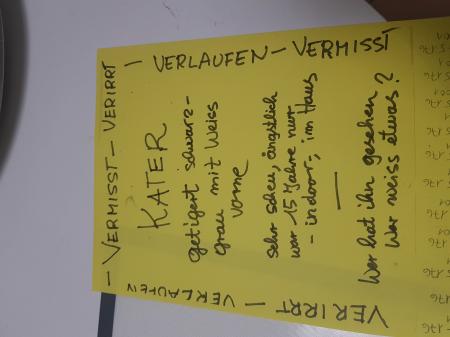 – VERMISST – VERIRRT –
VERLAUFEN – VERMISST
KATER
getigert schwarz-
grau mit Weiss
vorne
sehr scheu, ängstlich
war 15 Jahre nur
- indoor, im Haus
—
Wer hat ihn gesehen
Wer weiss etwas?
VERIRRT –
VERLAUFEN